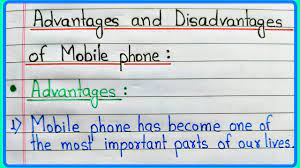 Advantages and Disadvantages
of Mobile phone :
• Advantages :
1) Mobile phone has become one of
the most important parts of our lives.